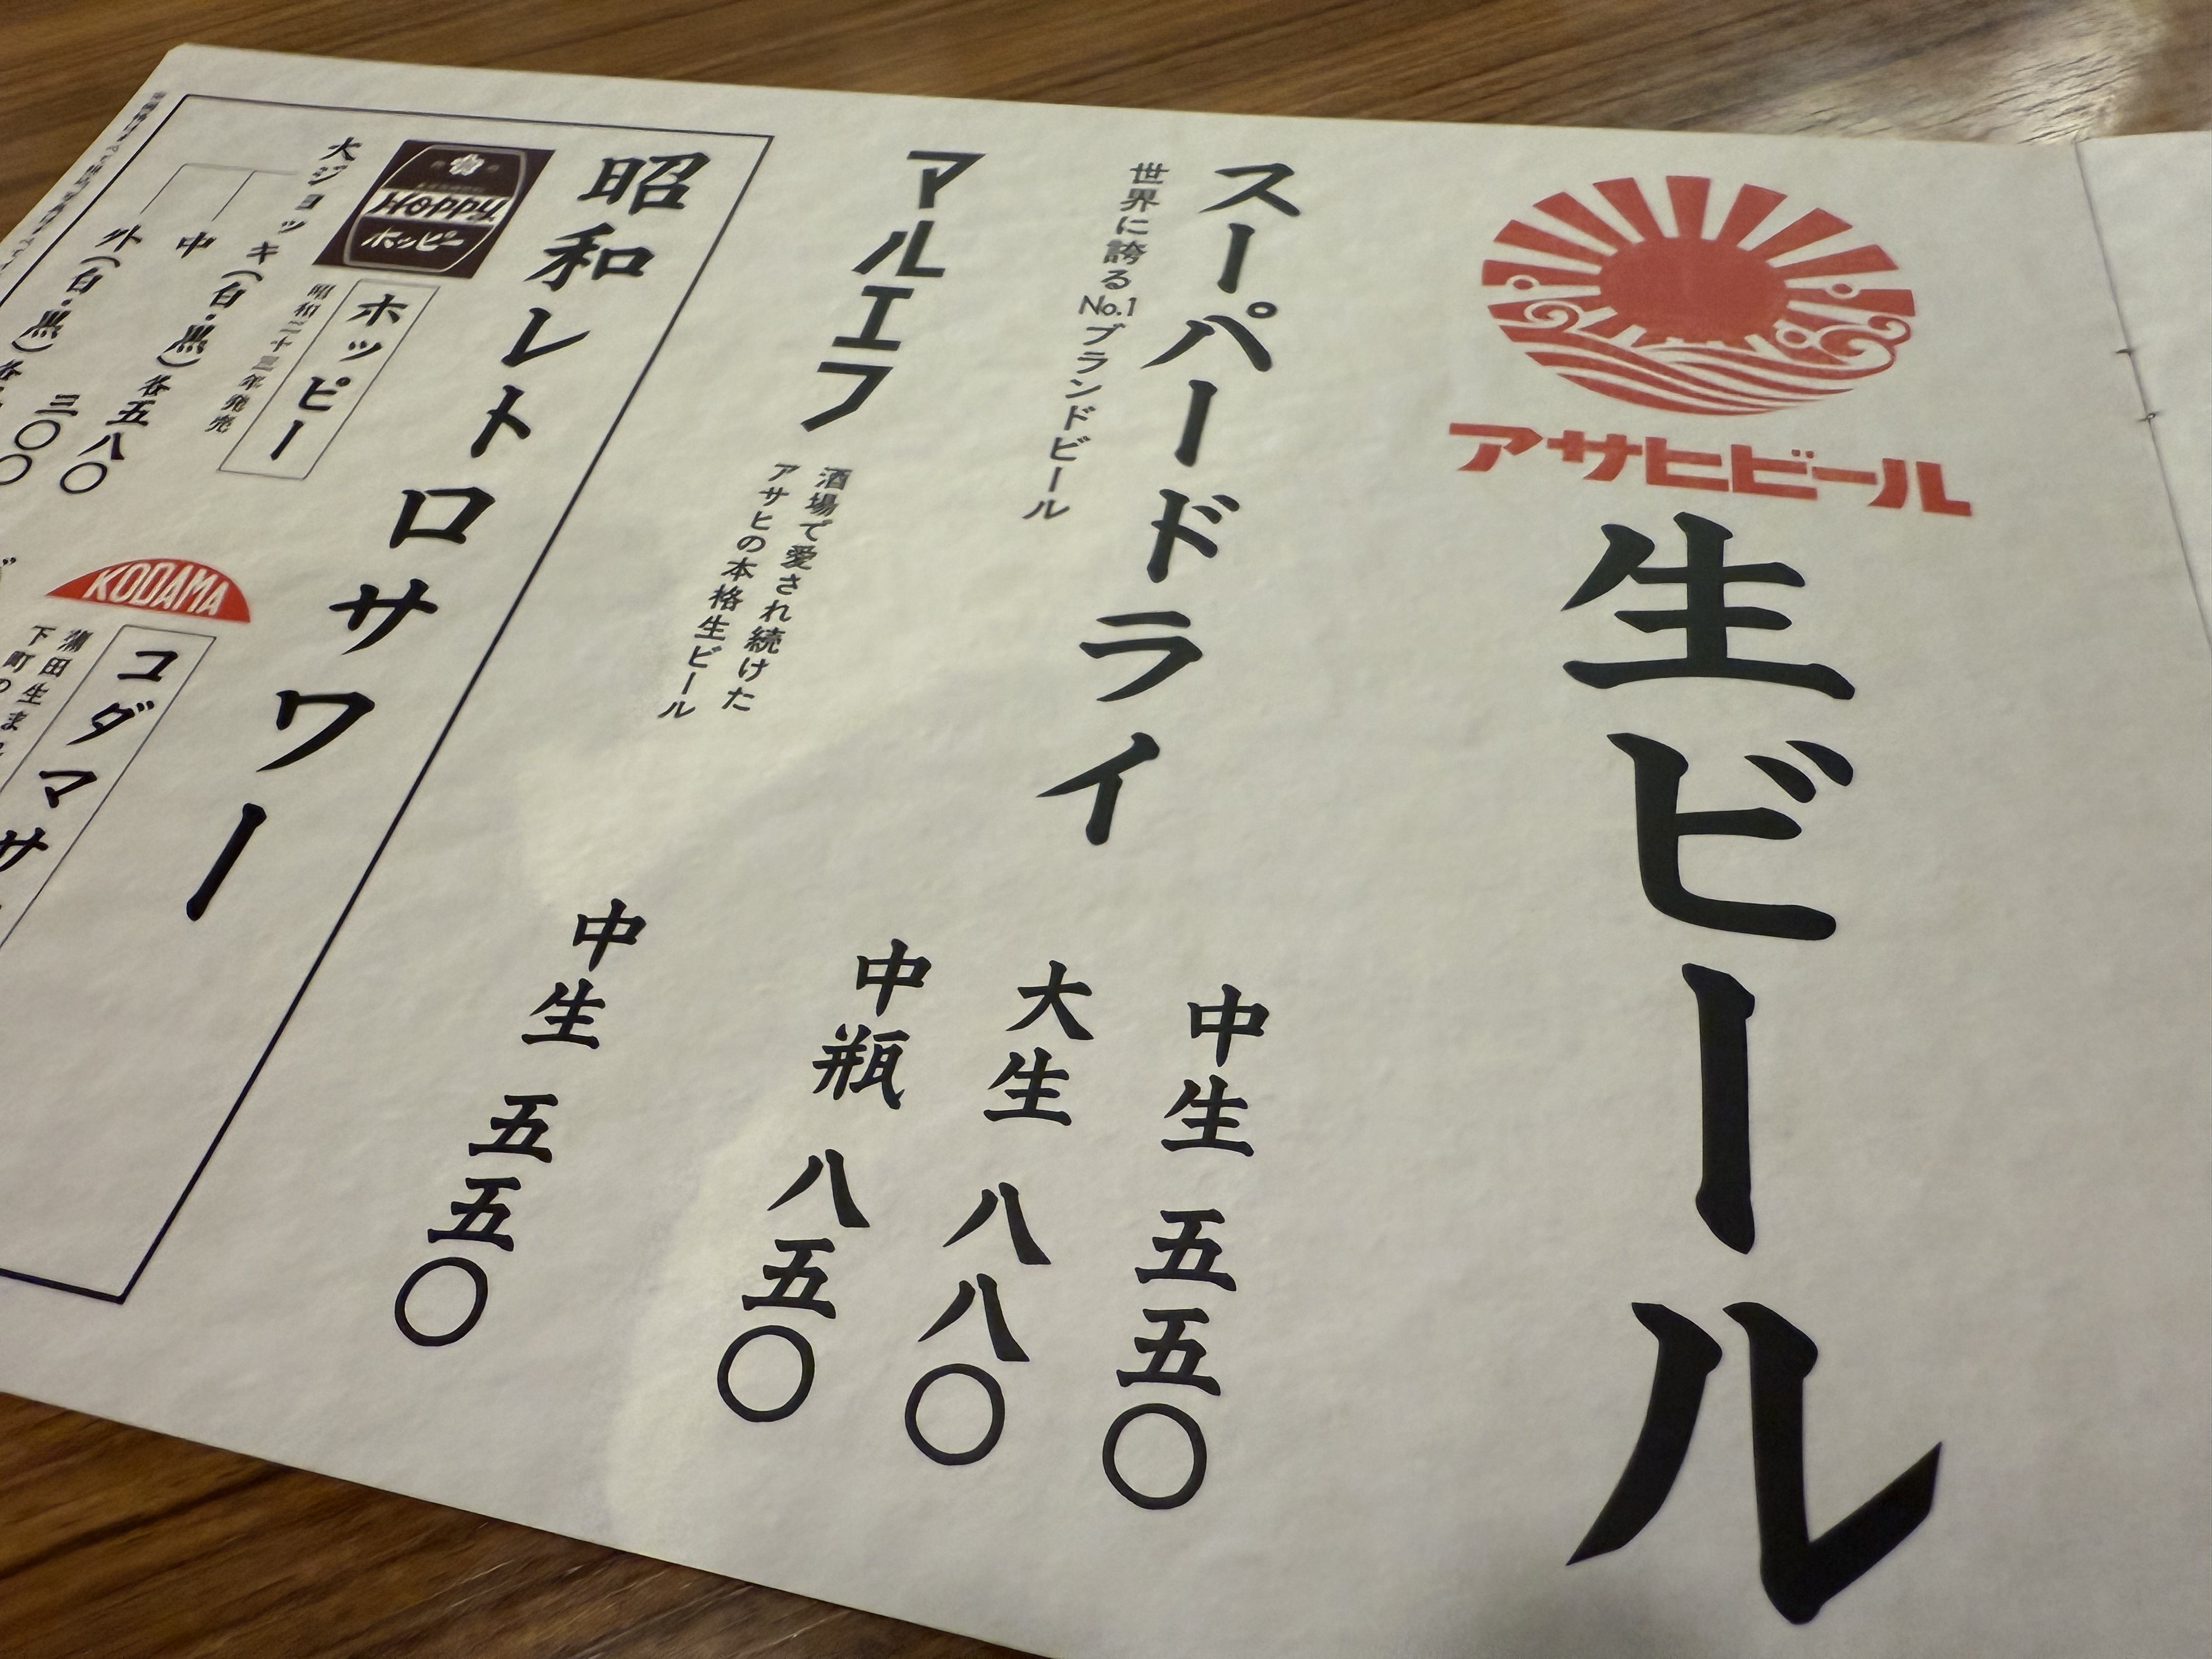 アサヒビール
生ビール
スーパードライ
世界に誇るNo.1ブランドビール
中生 五五〇
大生 八八〇
中瓶 八五〇
マルエフ
酒場で愛され続けた
アサヒの本格生ビール
中生 五五〇
昭和レトロサワー
Hoppy
ホッピー
ホッピー
昭和二十三年発売
大ジョッキ(白・黒)各五八〇
中 三〇〇
外(白・黒)各
KODAMA
コダマサ
蒲田生ま
下町の